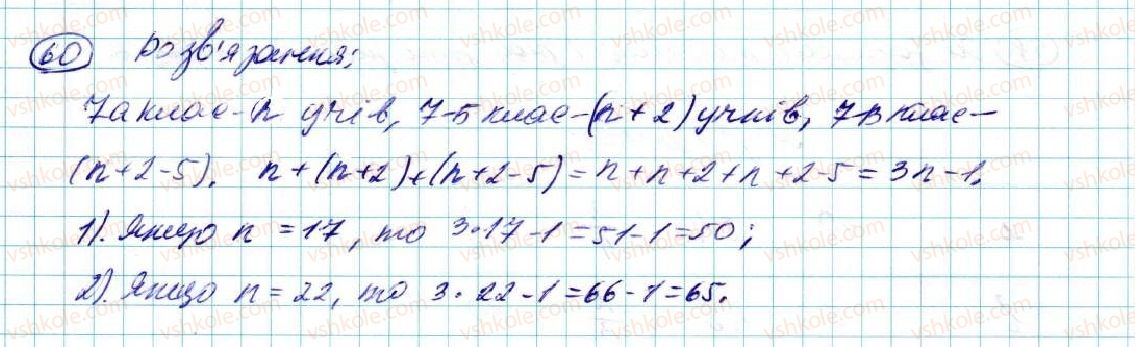 60 Розв'язання:
7а клас - n учів, 7-Б клас - (n+2) учнів, 7В клас -
(n+2-5). n+(n+2)+(n+2-5) = n+n+2+n+2-5 = 3n-1.
1). Якщо n = 17, то 3·17-1 = 51-1 = 50;
2). Якщо n = 22, то 3·22-1 = 66-1 = 65.